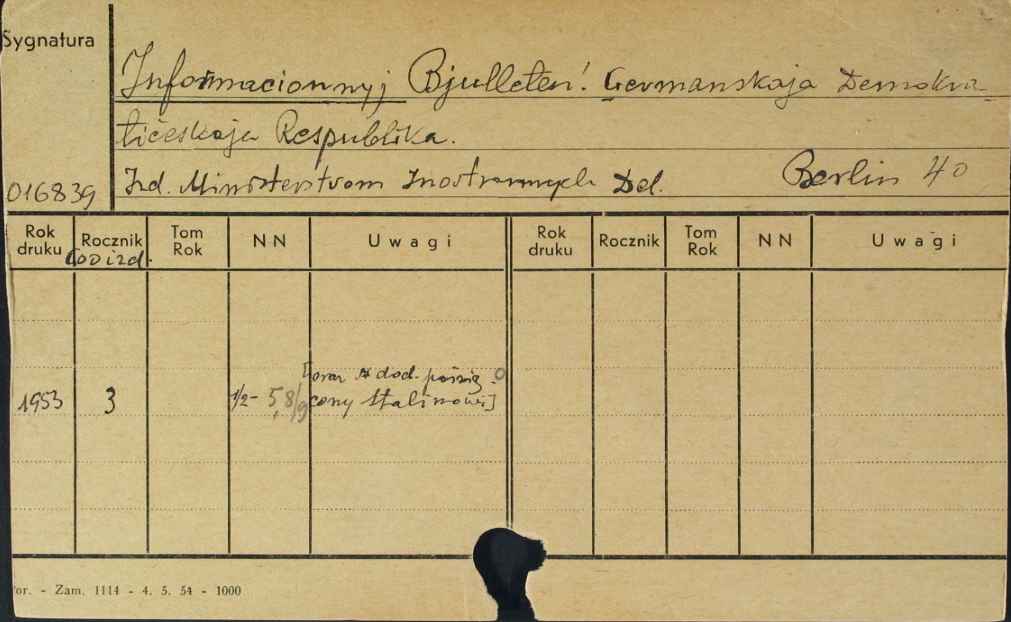 Sygnatura
Informacionnyj Bjulleten'. Germanskaja Demokra-
tičeskaja Respublika.
016839 Izd. Ministerstvom Inostrannych Del. Berlin 40
Rok druku Rocznik God izd. Tom Rok NN Uwagi Rok druku Rocznik Tom Rok NN Uwagi
[oraz dod. poświę-
1953 3 1/2- 5, 8/9 cony Stalinowi]
or. - Zam. 1114 - 4. 5. 54 - 1000